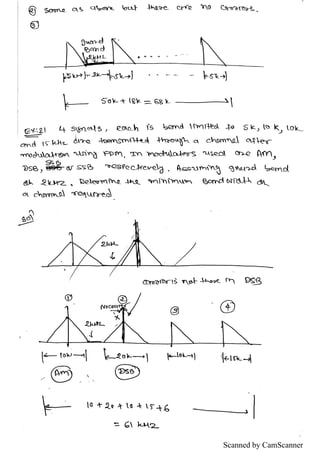 ③ Some as above but there are no Carriers.
Sol
guard
Band
2kHz
5k 2k 5k - - - - 5k
50k + 18k = 68k
Ex:21 4 signals, each is band limited to 5k, 10k, 10k
and 15 kHz are transmitted through a channel after
modulation using FDM, In modulators used are AM,
DSB, SSB & SSB respectively. Assuming guard band
of 2kHz, Determine the minimum Bandwidth of
a channel required.
Sol
2kHz
carrier is not there in DSB
① ② ③ ④
No carrier
X
2kHz
10k 20k 10k 15k
AM DSB
10 + 20 + 10 + 15 + 6
= 61 kHz
Scanned by CamScanner